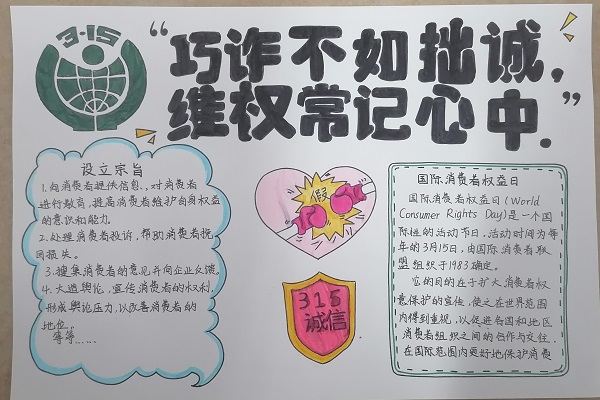 3·15
“巧诈不如拙诚,
维权常记心中.”
设立宗旨
1.向消费者提供信息,对消费者
进行教育,提高消费者维护自身权益
的意识和能力.
2.处理消费者投诉,帮助消费者挽
回损失。
3.搜集消费者的意见并向企业反馈。
4.大造舆论,宣传消费者的权利,
形成舆论压力,以改善消费者的
地位。
等等......
假
315
诚信
国际消费者权益日
国际消费者权益日(World
Consumer Rights Day)是一个国
际性的活动节日,活动时间为每
年的3月15日,由国际消费者联
盟组织于1983确定。
它的目的在于扩大消费者权
意保护的宣传,使之在世界范围
内得到重视,以促进各国和地区
消费者组织之间的合作与交往,
在国际范围内更好地保护消费